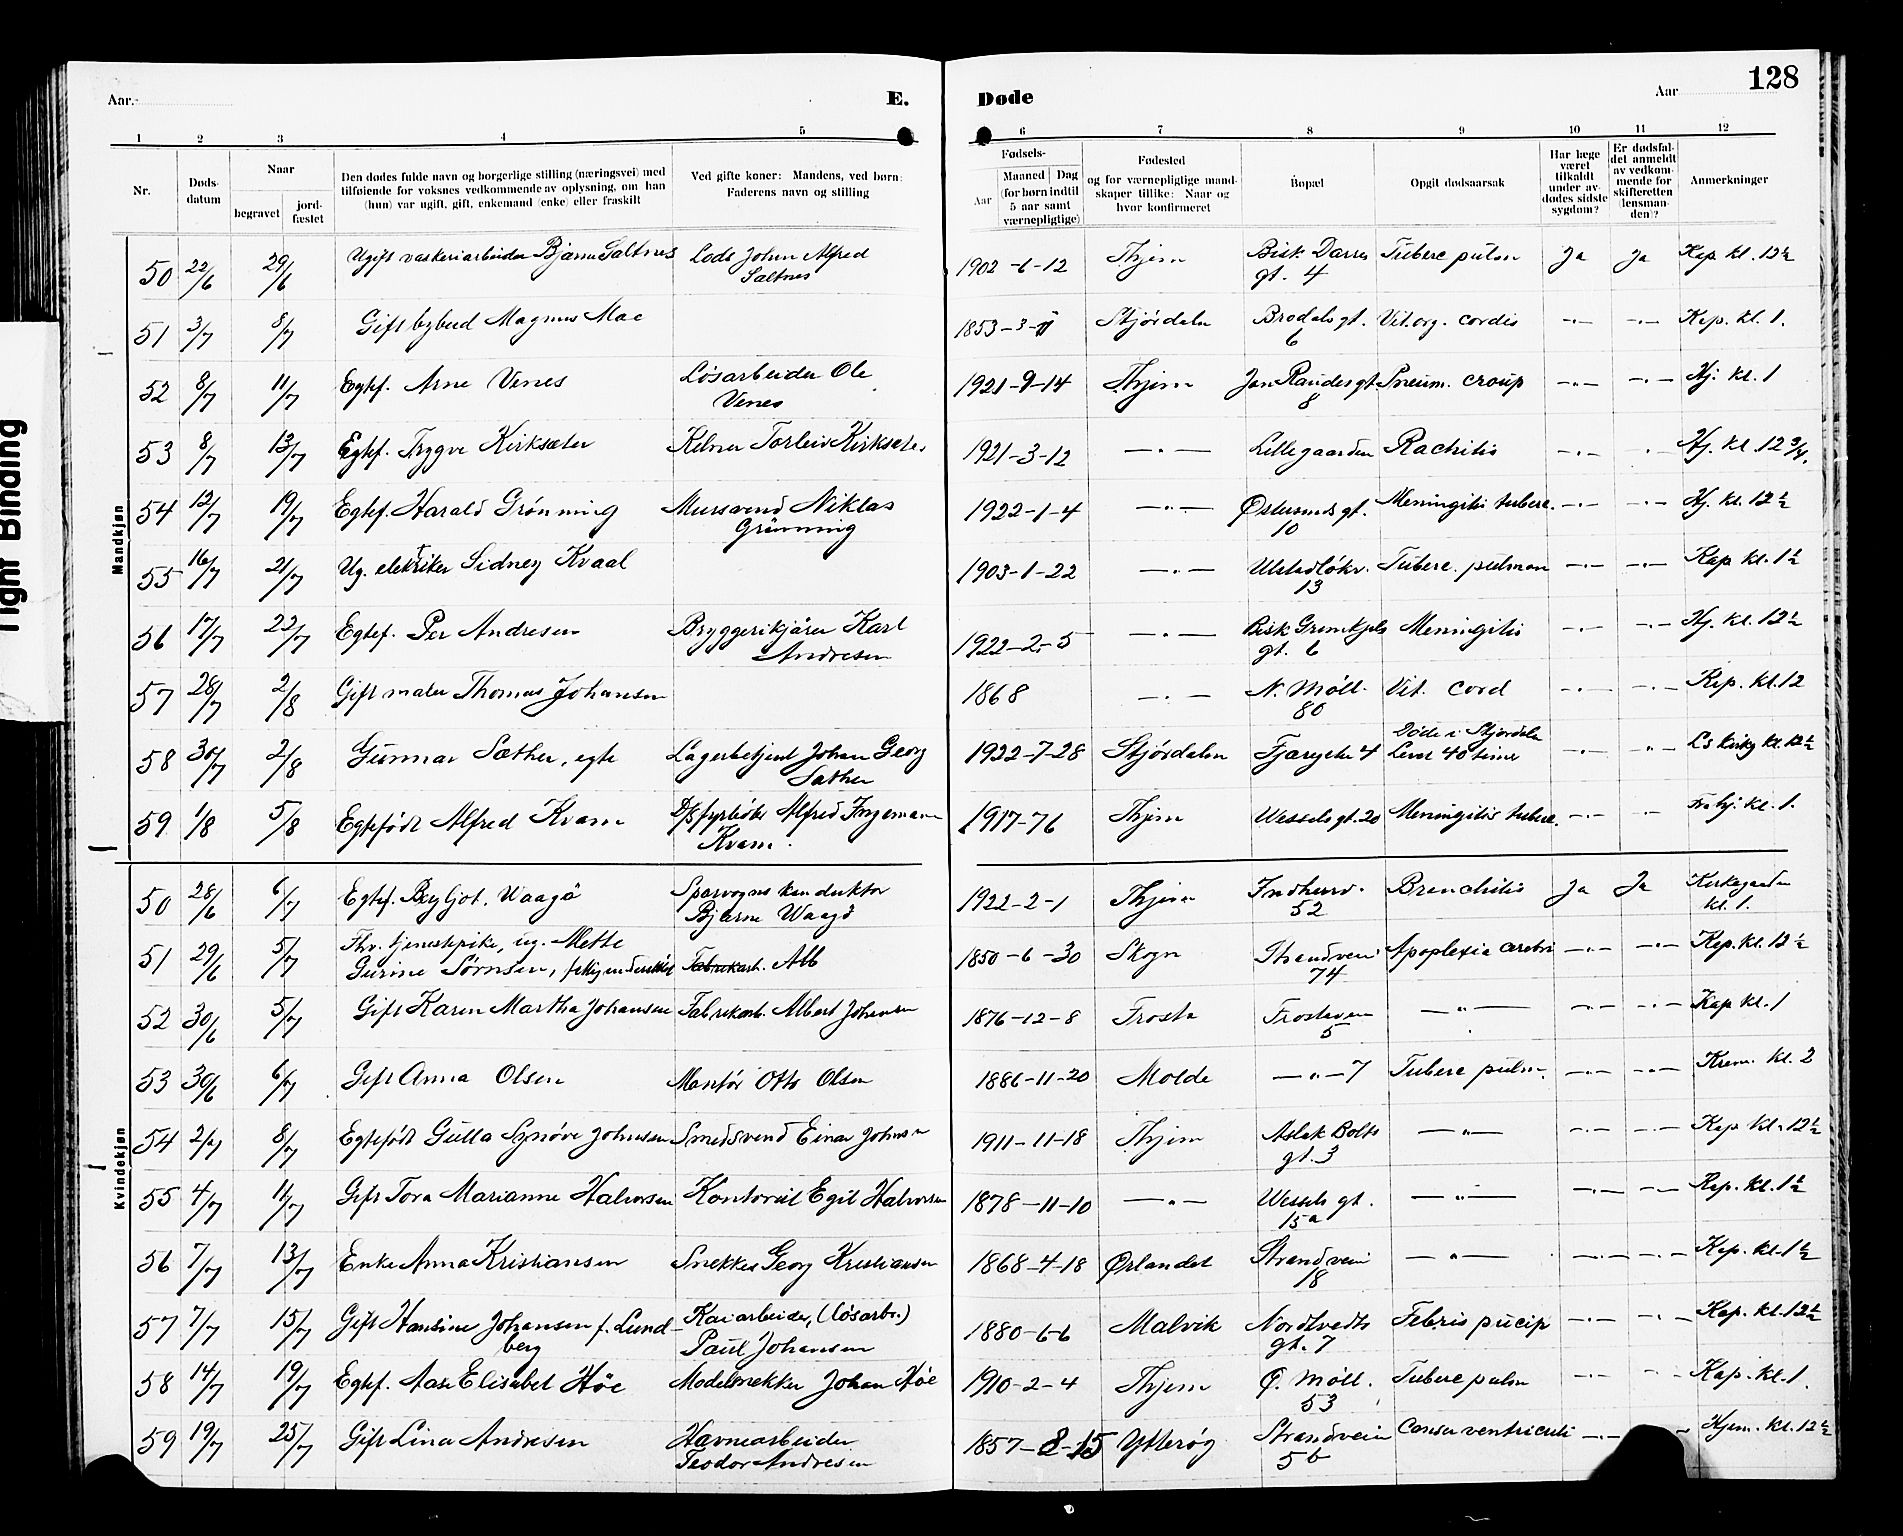 128
Aar
E. Døde
Aar
1 2 3 4 5 6 7 8 9 10 11 12
Nr.
Døds-
datum
Naar
begravet
jord-
fæstet
Den dødes fulde navn og borgerlige stilling (næringsvei) med
tilføiende for voksnes vedkommende av oplysning, om han
(hun) var ugift, gift, enkemand (enke) eller fraskilt
Ved gifte koner: Mandens, ved børn:
Faderens navn og stilling
Fødsels-
Aar
Maaned Dag
(for børn indtil
5 aar samt
værnepligtige)
Fødested
og for værnepligtige mand-
skaper tillike: Naar og
hvor konfirmeret
Bopæl
Opgit dødsaarsak
Har læge
været
tilkaldt
under av-
dødes sidste
sygdom?
Er dødsfal-
det anmeldt
av vedkom-
mende for
skifteretten
(lensman-
den)?
Anmerkninger
Mandkjøn
50 22/6 29/6 Ugift vaskeriarbeider Bjarne Saltnes Lods Johan Alfred 1902-6-12 Thjem Bisk Darres Tuberc pulm Ja Ja Kap kl. 12½
Saltnes gt. 4
51 3/7 8/7 Gift bybud Magnus Moe 1853-3- Stjördalen Brodals gt. Vit. org. cordis -"- -"- Kap. kl. 1.
6
52 8/7 11/7 Egtef. Arne Venes Løsarbeider Ole 1921-9-14 Thjem Jon Raudes gt. Pneum. croup -"- -"- Hj. kl. 1
Venes 8
53 8/7 13/7 Egtef. Trygve Kirksæter Kelner Torleiv Kirksæter 1921-3-12 -"- Lillegaarden Rachitis -"- -"- Hj. kl. 12 3/4.
54 12/7 19/7 Egtef. Harald Grönning Mursvend Niklas 1922-1-4 -"- Østersunds gt. Meningitis tuberc. -"- -"- Hj. kl. 12½
Grönning 10
55 16/7 21/7 Ug. elektriker Sidney Kvaal 1903-1-22 -"- Ulstadløkv. Tuberc. pulmon -"- -"- Kap kl. 1½
13
56 17/7 22/7 Egtef. Per Andresen Bryggerikjører Karl 1922-2-5 -"- Bisk Grimkjels Meningitis -"- -"- Hj. kl. 12½
Andresen gt. 6
57 28/7 2/8 Gift maler Thomas Johansen 1868 -"- N. Möll. Vit. cord -"- -"- Kap. kl. 12
80
58 30/7 2/8 Gunnar Sæther, egte Lagerbetjent Johan Georg 1922-7-28 Stjördalen Fjærgt 4 Døde i Stjördalen -"- -"- kl. 12½
Sæther Levet 40 timer
59 1/8 5/8 Egtefödt Alfred Kvam D/S fyrböter Alfred Ingemann 1917-7 6 Thjem Wessels gt. 20 Meningitis tuberc. -"- -"- Fra hj. kl. 1.
Kvam.
Kvindekjøn
50 28/6 6/7 Egtef. Bergljot. Waagö Sporvognskonduktør 1922-2-1 Thjem Indherv. Bronchitis Ja Ja Kirkegaarden
Bjarne Waagö 52 kl. 1.
51 29/6 5/7 Fhv. tjenestepike, ug. Mette 1850-6-30 Skogn Strandvein Apoplexia cerebri -"- -"- Kap. kl. 12½
Gurine Sörnsen, Fabrikarb. Alb 74
52 30/6 5/7 Gift Karen Martha Johansen Fabrikarb. Albert Johansen 1876-12-8 Frosta Frostavein -"- -"- -"- Kap kl. 1
5
53 30/6 6/7 Gift Anna Olsen Montör Otto Olsen 1886-11-20 Molde -"- 7 Tuberc pulm. -"- -"- Krem. kl. 2
54 2/7 8/7 Egtefödt Gulla Synöve Johnsen Smedsvend Einar Johnsen 1911-11-18 Thjem Aslak Bolts -"- -"- -"- Kap kl. 12½
gt. 3
55 4/7 11/7 Gift Tora Marianne Halvorsen Kontorist Egil Halvorsen 1878-11-10 -"- Wessels gt. -"- -"- -"- Kap. kl. 1½
15a
56 7/7 13/7 Enke Anna Kristiansen Snekker Georg Kristiansen 1868-4-18 Ørlandet Strandvein -"- -"- -"- Kap. kl. 1½
18
57 7/7 15/7 Gift Hansine Johansen f. Lund- Kaiarbeider, (løsarb.) 1880-6-6 Malvik Nordtvedts Febris puerp -"- -"- Kap. kl. 12½
berg Paul Johansen gt. 7
58 14/7 19/7 Egtef. Aase Elisabet Höe Modelsnekker Johan Höe 1910-2-4 Thjem Ø. Möll. Tuberc pulm -"- -"- Kap. kl. 1.
53
59 19/7 25/7 Gift Lina Andresen Havnearbeider 1857-8-15 Ytterøy Strandvein Cancer ventriculi -"- - Hjem. kl. 12½
Teodor Andresen 5b
Tight Binding